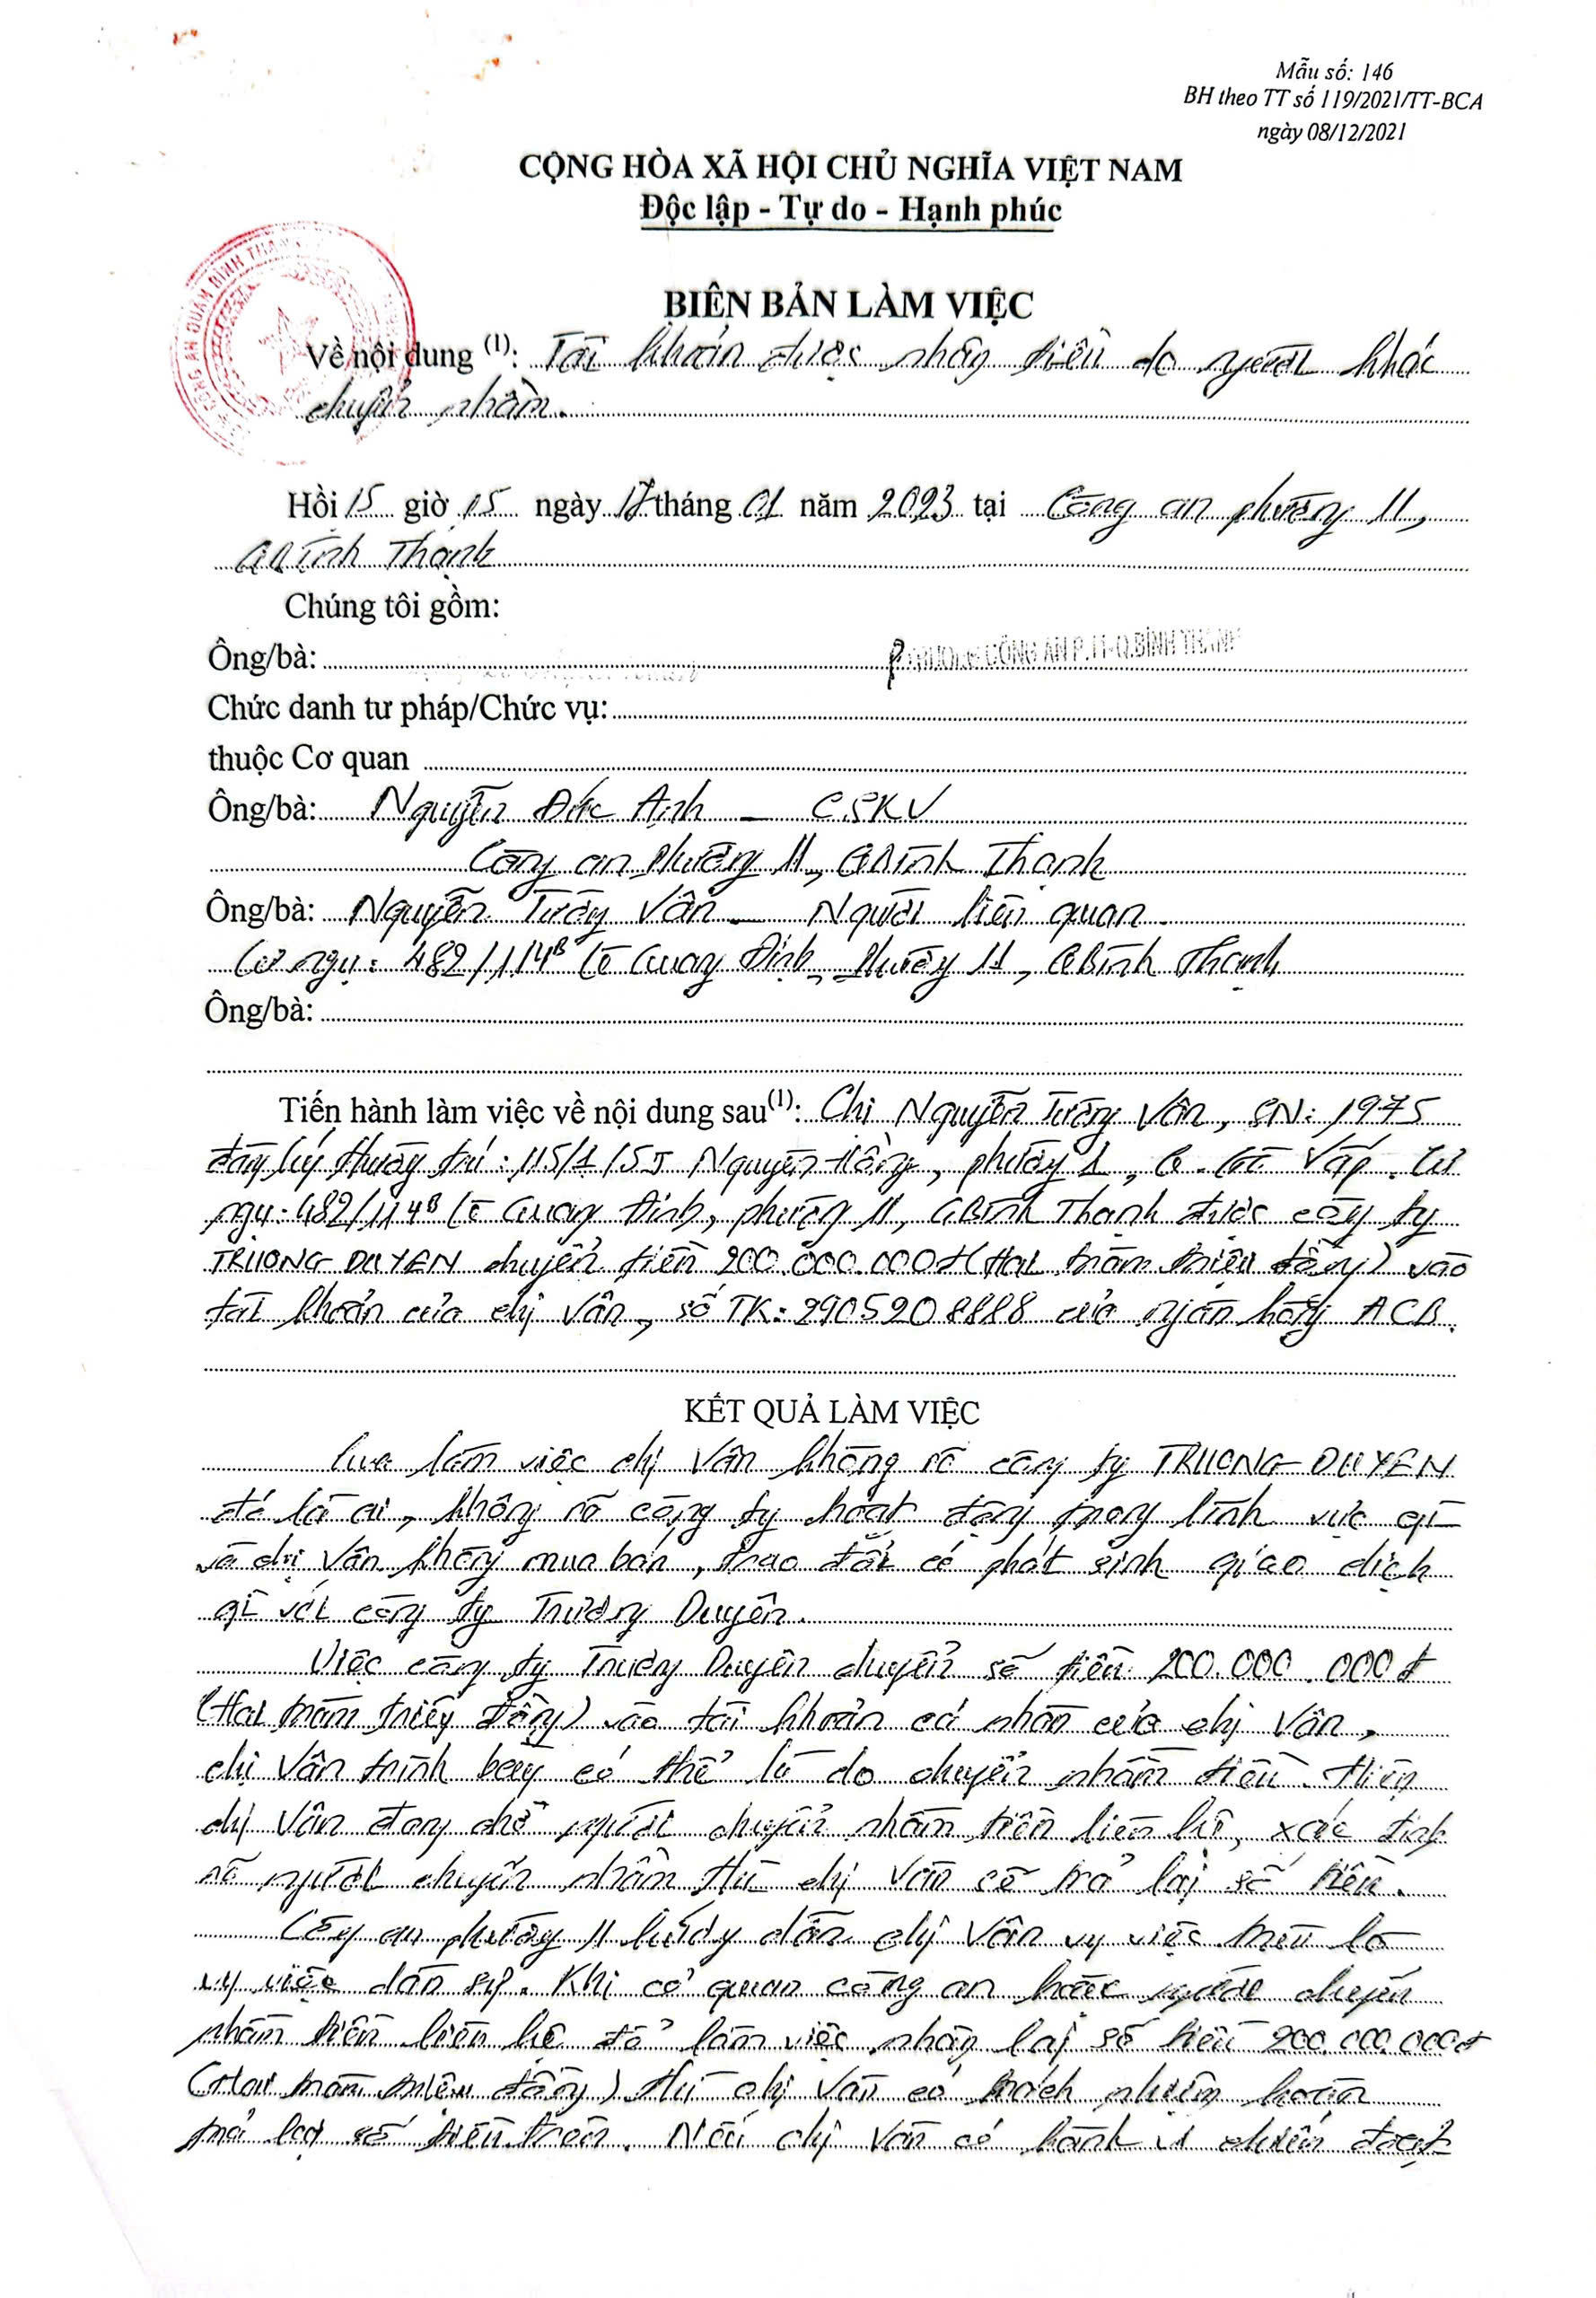 Mẫu số: 146
BH theo TT số 119/2021/TT-BCA
ngày 08/12/2021
CỘNG HÒA XÃ HỘI CHỦ NGHĨA VIỆT NAM
Độc lập - Tự do - Hạnh phúc
BIÊN BẢN LÀM VIỆC
Về nội dung (1): Tài khoản được nhận tiền do người khác
chuyển nhầm.
Hồi 15 giờ 15 ngày 17 tháng 01 năm 2023 tại Công an phường 11,
Q Bình Thạnh
Chúng tôi gồm:
Ông/bà: TRƯỞNG CÔNG AN P.11-Q.BÌNH THẠNH
Chức danh tư pháp/Chức vụ:
thuộc Cơ quan
Ông/bà: Nguyễn Đức Anh – CSKV
Công an phường 11, Q Bình Thạnh
Ông/bà: Nguyễn Tường Vân – Người liên quan
Cư ngụ: 482/114B Lê Quang Định, Phường 11, Q Bình Thạnh
Ông/bà:
Tiến hành làm việc về nội dung sau(1): Chị Nguyễn Tường Vân, SN: 1975
đăng ký thường trú: 115/1/5J Nguyên Hồng, phường 1, Q. Gò Vấp. Cư
ngụ: 482/114B Lê Quang Định, phường 11, Q Bình Thạnh được công ty
TRUONG DUYEN chuyển tiền 200.000.000đ (Hai trăm triệu đồng) vào
tài khoản của chị Vân, số TK: 2905208888 của ngân hàng ACB.
KẾT QUẢ LÀM VIỆC
Qua làm việc chị Vân không rõ công ty TRUONG DUYEN
đó là ai, không rõ công ty hoạt động trong lĩnh vực gì
và chị Vân không mua bán, trao đổi có phát sinh giao dịch
gì với công ty Trương Duyên.
Việc công ty Trương Duyên chuyển số tiền 200.000.000đ
(Hai trăm triệu đồng) vào tài khoản cá nhân của chị Vân,
chị Vân trình bày có thể là do chuyển nhầm tiền. Hiện
chị Vân đang chờ người chuyển nhầm tiền liên hệ, xác định
rõ người chuyển nhầm thì chị Vân sẽ trả lại số tiền.
Công an phường 11 hướng dẫn chị Vân vụ việc trên là
vụ việc dân sự. Khi cơ quan công an hoặc người chuyển
nhầm tiền liên hệ để làm việc nhận lại số tiền 200.000.000đ
(Hai trăm triệu đồng) thì chị Vân có trách nhiệm hoàn
trả lại số tiền trên. Nếu chị Vân có hành vi chiếm đoạt